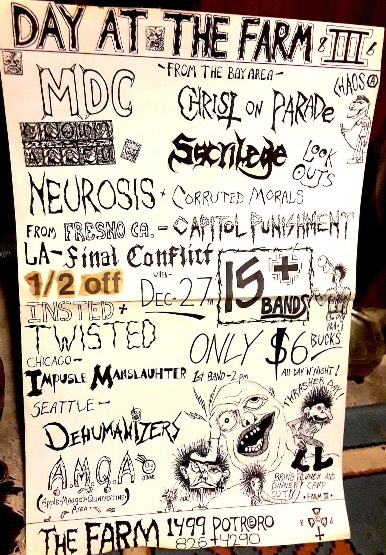 DAY AT THE FARM III
8 6
-FROM THE BAY AREA-
MDC
CHRIST ON PARADE
CHAOS
Sacrilege
LOOK OUTS
NEUROSIS + CORRUTED MORALS
FROM FRESNO CA. - CAPITOL PUNISHMENT
LA- Final Conflict
1/2 off
DEC-27TH
15 +
BANDS
INSTED +
TWISTED
ONLY $6 BUCKS
ALL DAY N' NIGHT!
CHICAGO-
IMPUSLE MANSLAUHTER
1st BAND - 2 pm
THRASHER DAY!
SEATTLE-
DEHUMANIZERS
A.M.Q.A
BRING A LUNCH AND
DINNER & CAMP
OUT!!
FARM III
THE FARM 1499 POTRORO
826-4290
8 6